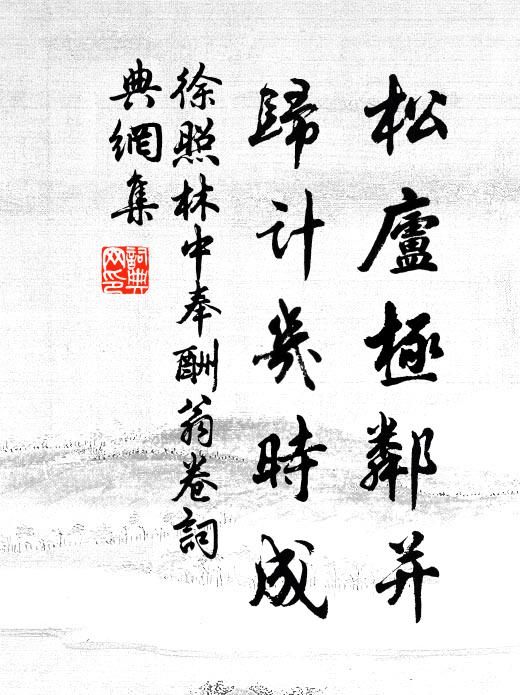 松廬極鄰并
歸計幾時成
徐照林中奉酬翁卷詞
典網集
詞典网印